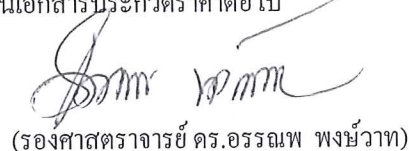 นเอกสารประกวดราคาต่อไป
(รองศาสตราจารย์ ดร.อรรณพ พงษ์วาท)